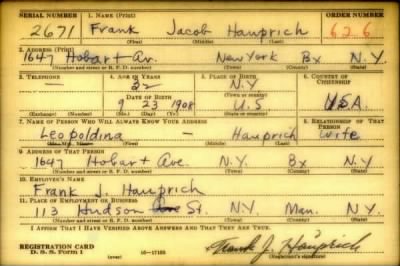 SERIAL NUMBER 1. NAME (Print) ORDER NUMBER
2671 Frank Jacob Hauprich 626
(First) (Middle) (Last)
2. ADDRESS (Print)
1647 Hobart Av. New York Bx N.Y.
(Number and street or R. F. D. number) (Town) (County) (State)
3. TELEPHONE 4. AGE IN YEARS 5. PLACE OF BIRTH 6. COUNTRY OF CITIZENSHIP
— 32 N.Y.
DATE OF BIRTH (Town or county)
9 23 1908 U.S U.S.A.
(Exchange) (Number) (Mo.) (Day) (Yr.) (State or country)
7. NAME OF PERSON WHO WILL ALWAYS KNOW YOUR ADDRESS 8. RELATIONSHIP OF THAT PERSON
Leopoldina — Hauprich Wife
(Mr., Mrs., Miss) (First) (Middle) (Last)
9. ADDRESS OF THAT PERSON
1647 Hobart Ave. N.Y. Bx N.Y.
(Number and street or R. F. D. number) (Town) (County) (State)
10. EMPLOYER'S NAME
Frank J. Hauprich
11. PLACE OF EMPLOYMENT OR BUSINESS
113 Hudson St. N.Y. Man. N.Y.
(Number and street or R. F. D. number) (Town) (County) (State)
I AFFIRM THAT I HAVE VERIFIED ABOVE ANSWERS AND THAT THEY ARE TRUE.
REGISTRATION CARD
D. S. S. Form 1 (over) 16—17105 Frank J. Hauprich
(Registrant's signature)